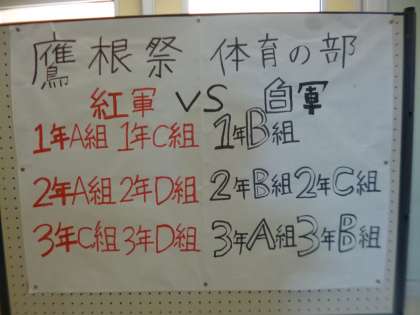 鷹根祭 体育の部
紅軍 VS 白軍
1年A組 1年C組 1年B組
2年A組 2年D組 2年B組 2年C組
3年C組 3年D組 3年A組 3年B組